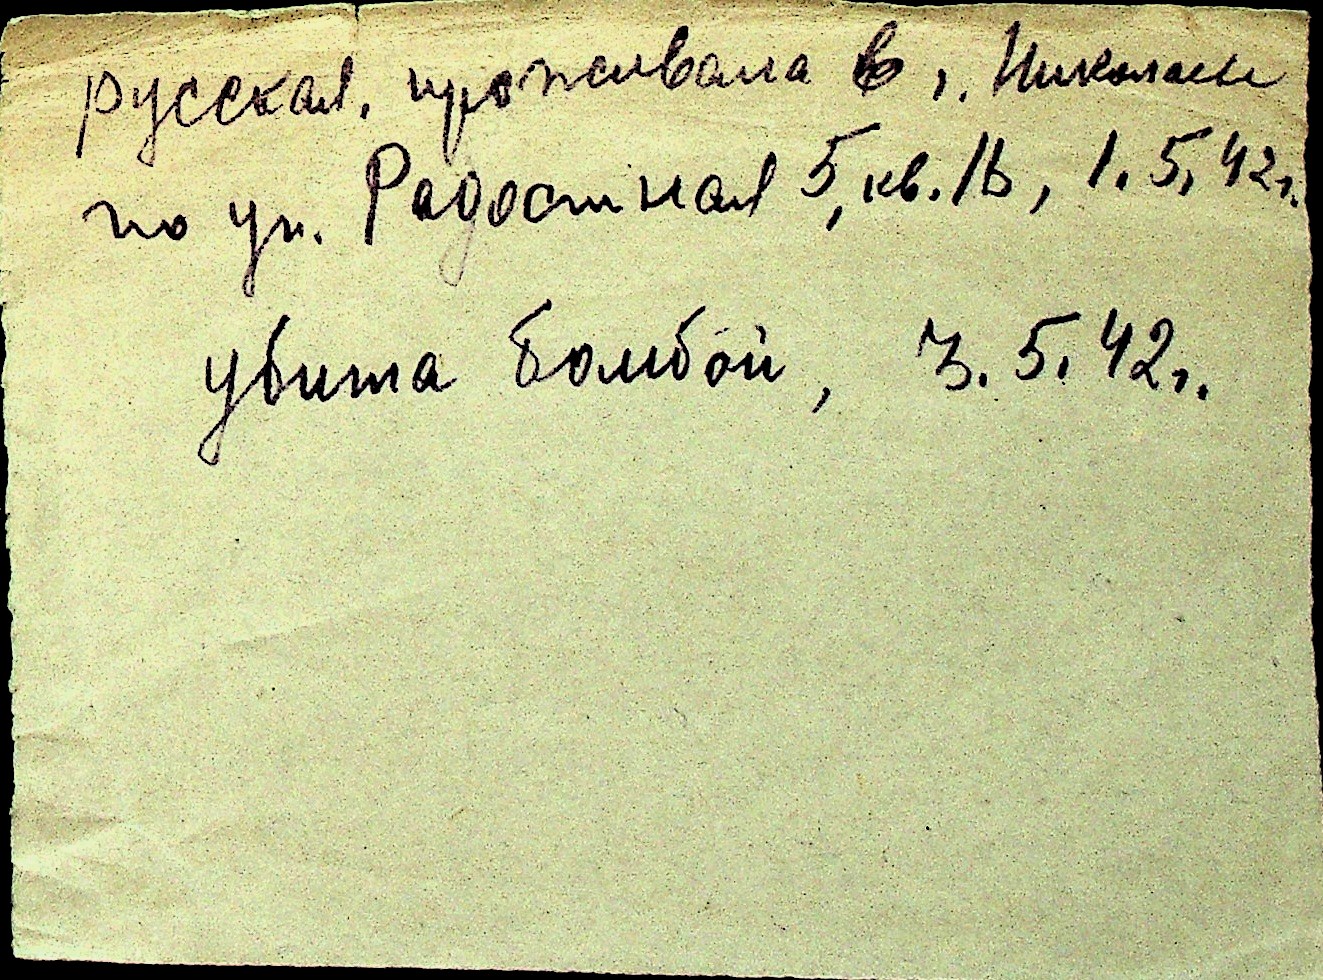 русская, проживала в г. Николаеве
по ул. Радостная 5, кв. 1б, 1.5.42г.
убита бомбой, 3.5.42г.